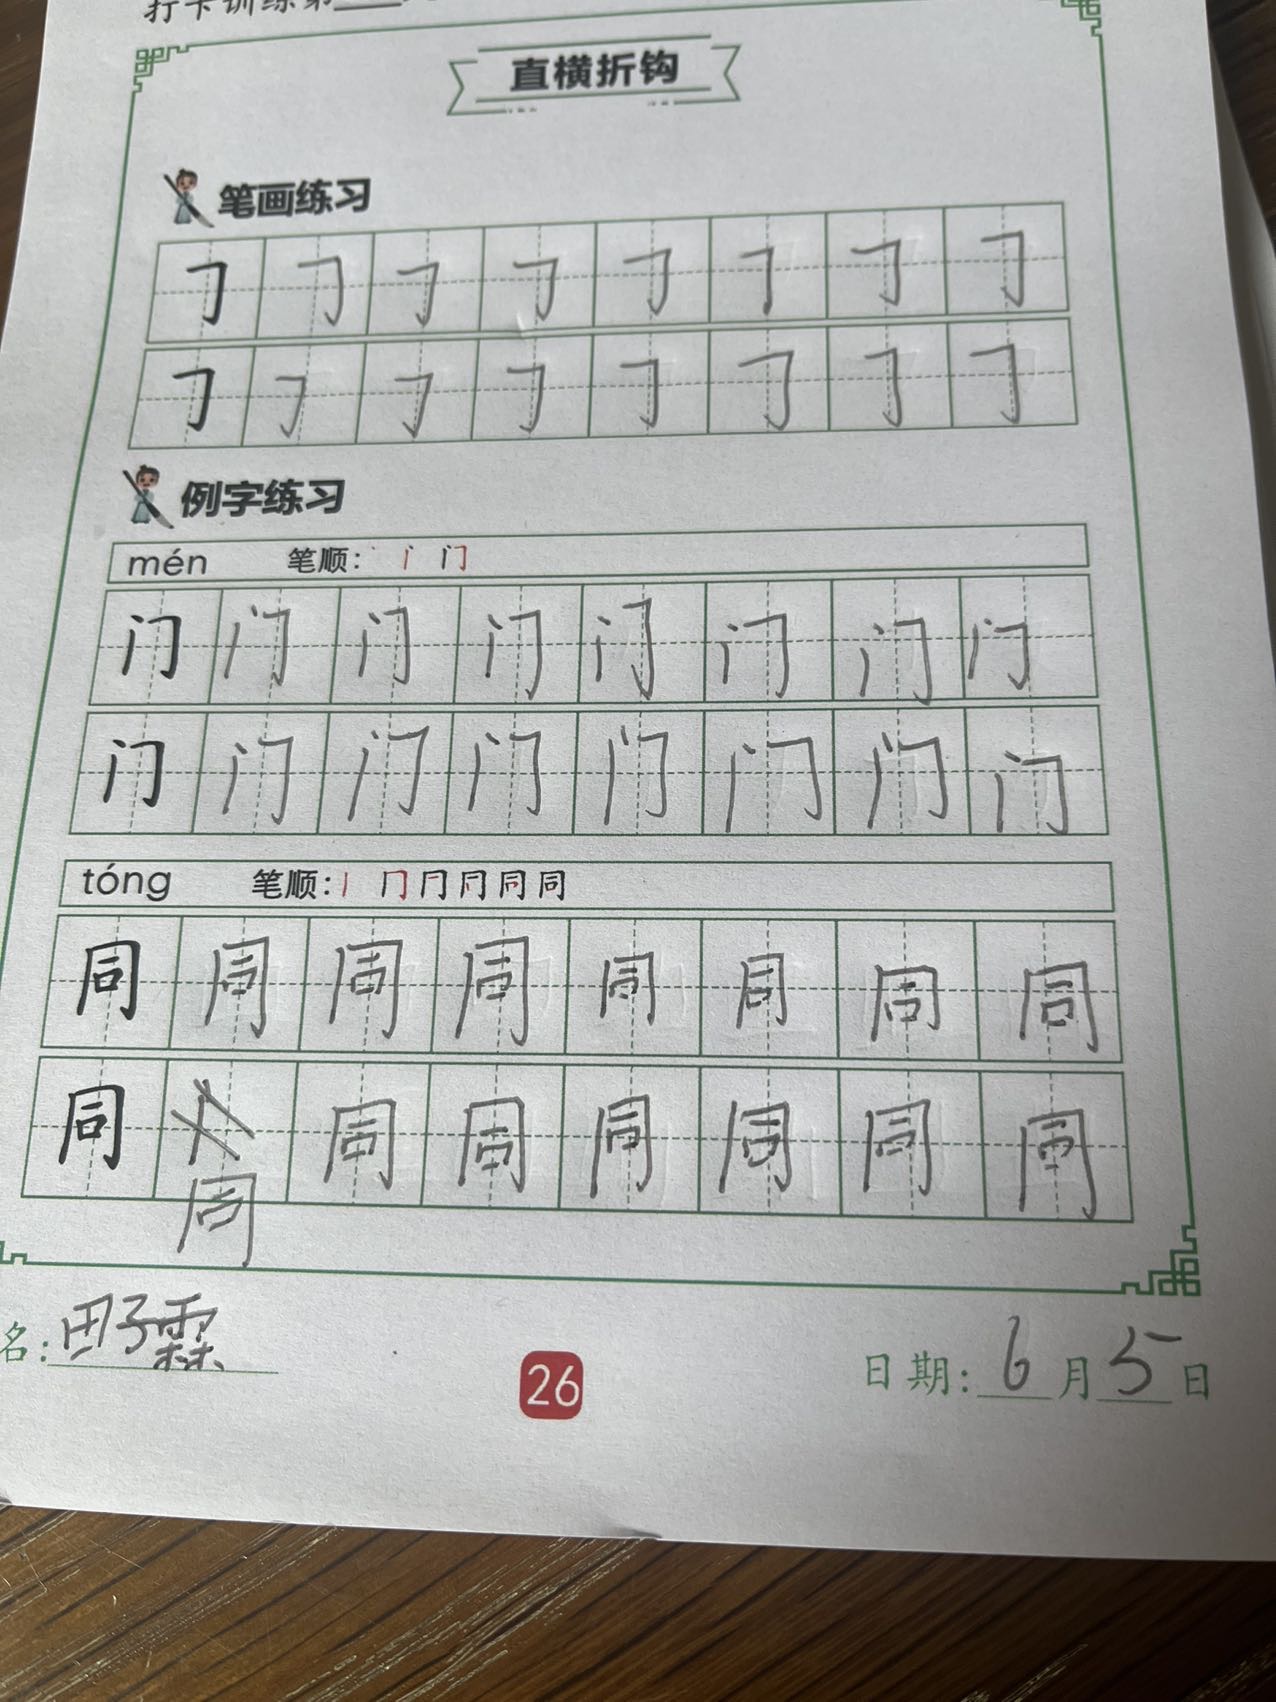 打卡训练第
直横折钩
笔画练习
㇆ ㇆ ㇆ ㇆ ㇆ ㇆ ㇆ ㇆
㇆ ㇆ ㇆ ㇆ ㇆ ㇆ ㇆ ㇆
例字练习
mén 笔顺: 丶 丨 门
门 门 门 门 门 门 门 门
门 门 门 门 门 门 门 门
tóng 笔顺: 丨 冂 同
同 同 同 同 同 同 同 同
同 同 同 同 同 同 同
同
名: 田子霖
26
日期: 6月5日